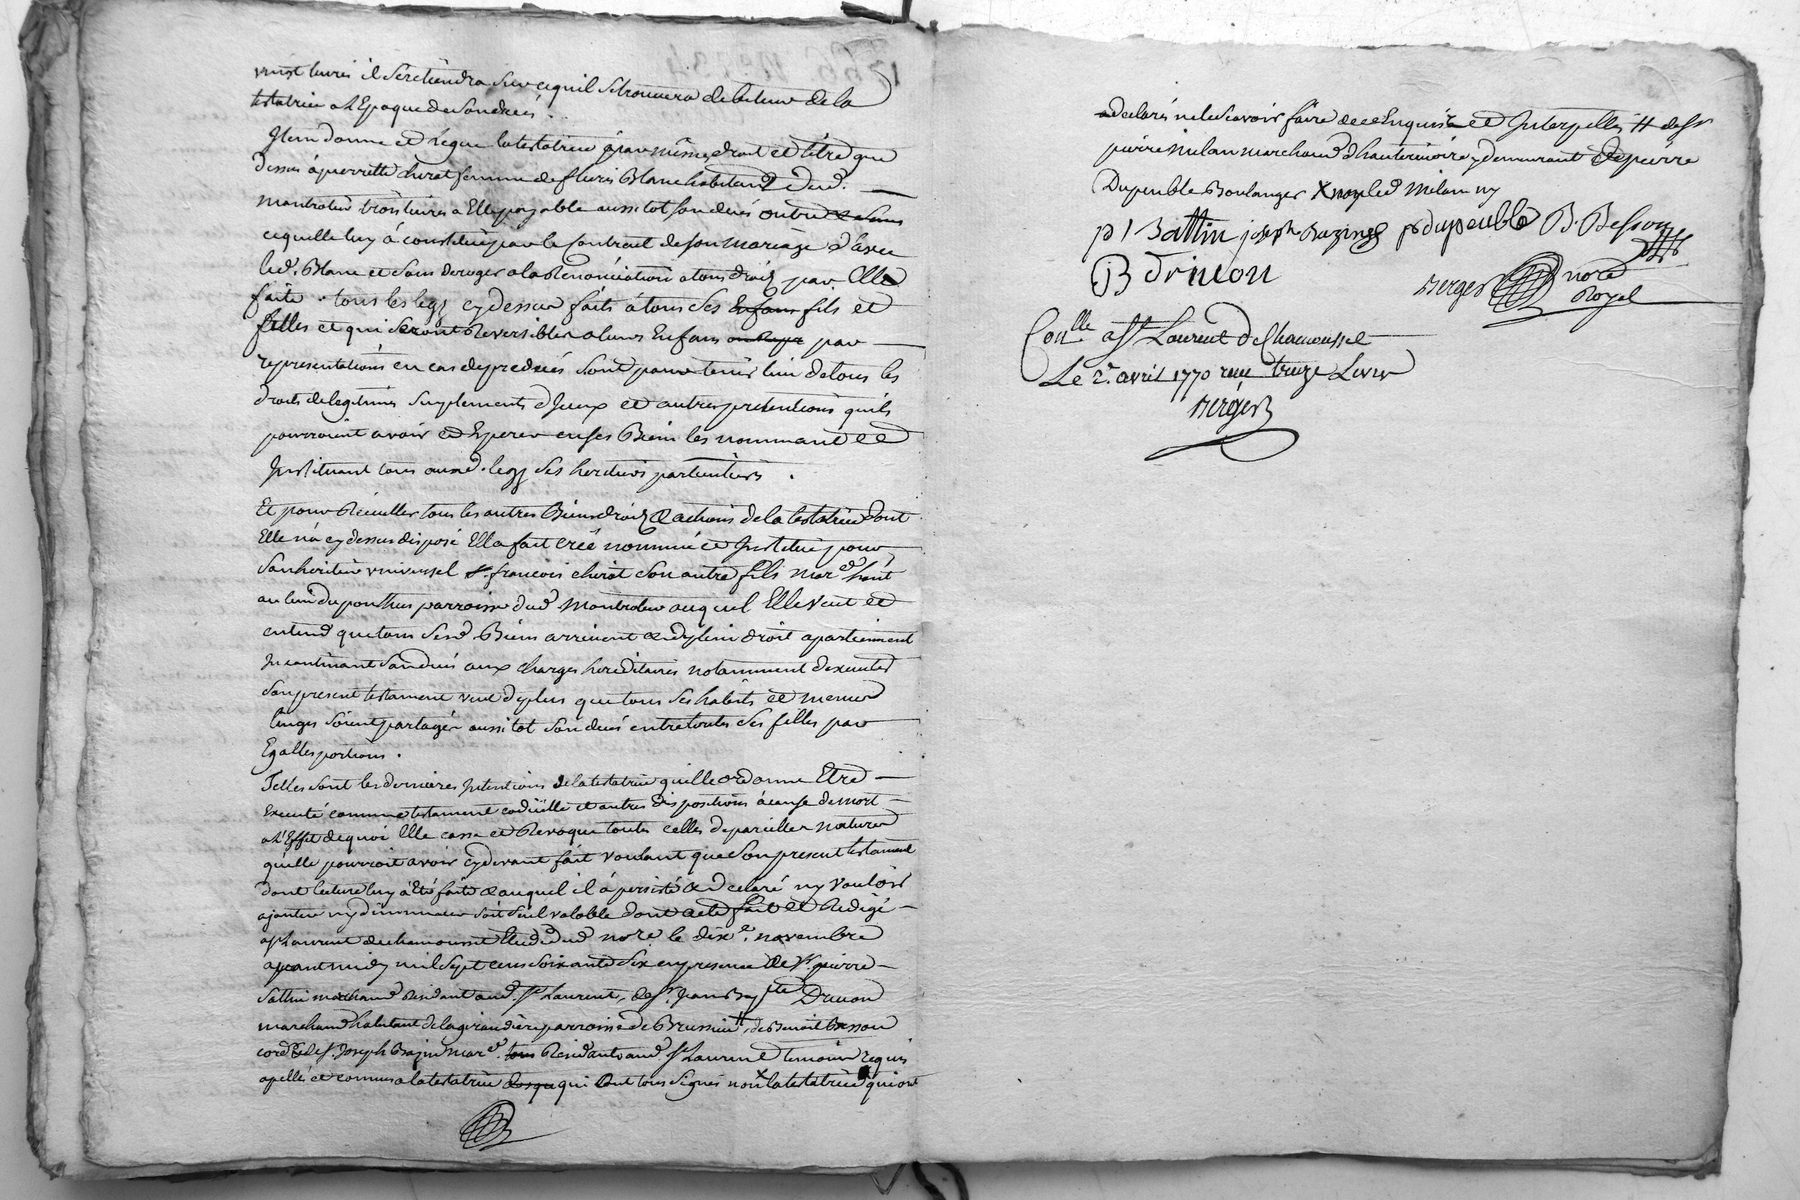 vingt livres il s'en tiendra sur ce qu'il se trouvera debiteur de la
testatrice a l'Epoque de son deces.
Item donne et legue la testatrice à par mêmes droit et titre que
dessus à pierrette chirat femme de fleury Blanc habitant dud.
montrotier trois livres a Elle payable aussitot son deces outre
ce quelle luy à constitué par le Contrat de son mariage d'avec
led. Blanc et sans deroger a la Renonciation a tous droits par Elle
faite. tous les legs cy dessus faits à tous ses Enfans fils et
filles et qui seront Reversibles a leurs Enfans par
representations en cas de predeces sont pour tenir lieu de tous les
droits de legitimes suplements d'Iceux et autres pretentions quils
pourroient avoir et Esperer en ses Biens les nommant et
Instituant tous auxd. legs ses heritiers particuliers.
Et pour Recueillir tous les autres Biens droits & actions de la testatrice dont
Elle n'a cy dessus disposé Ella fait créé nommé et Institué pour
son heritier universel sr. francois chirat son autre fils mard. habt
au lieu du ponthus parroisse dud. Montrotier auquel Elle veut et
entend que tous sesd. Biens arrivent & de plein droit apartiennent
Incontinant son deces aux charges hereditaires notamment d'executer
son present testament veut de plus que tous ses habits et menus
linges soient partagés aussitot son deces entre toutes ses filles par
Egalles portions.
Telles sont les dernieres Intentions de la testatrice quelle ordonne Etre
Executé comme testament codicille et autres dispositions à cause de mort
a l'Effet de quoi Elle casse et Revoque toutes celles de pareilles natures
quelle pourroit avoir cy devant fait voulant que son present testament
dont lecture luy à Eté faite & auquel il à persisté & declaré ny vouloir
ajouter ny diminuer soit seul valable dont acte fait et Redigé
a st Laurent de chamousset Etude dud. nore le dixe. novembre
avant midy mil sept cens soixante six en presence de sr. pierre
Sattin marchand Residant aud. st Laurent, de sr. Jean Baptte Drivon
marchand habitant de la girandiere parroisse de Brussieu #, de Benoit Besson
cordr. & de sr. Joseph Bazin mard. tous Residants aud. st Laurent temoins requis
apellés et connus a la testatrice qui ont tous signés non x la testatrice qui ont
declarés ne le scavoir faire de ce Enquis et Interpellés # de sr
pierre milan marchand d'hauterivoire y demeurant de pierre
Dupeuble Boulanger x non led Milan ny
p Sattin joseph Bazin p dupeuble B. Besson
JB drivon
Berger nore Royal
Conlle a st Laurent de Chamousset
Le 2e. avril 1770 reçu treize Livres
Berger